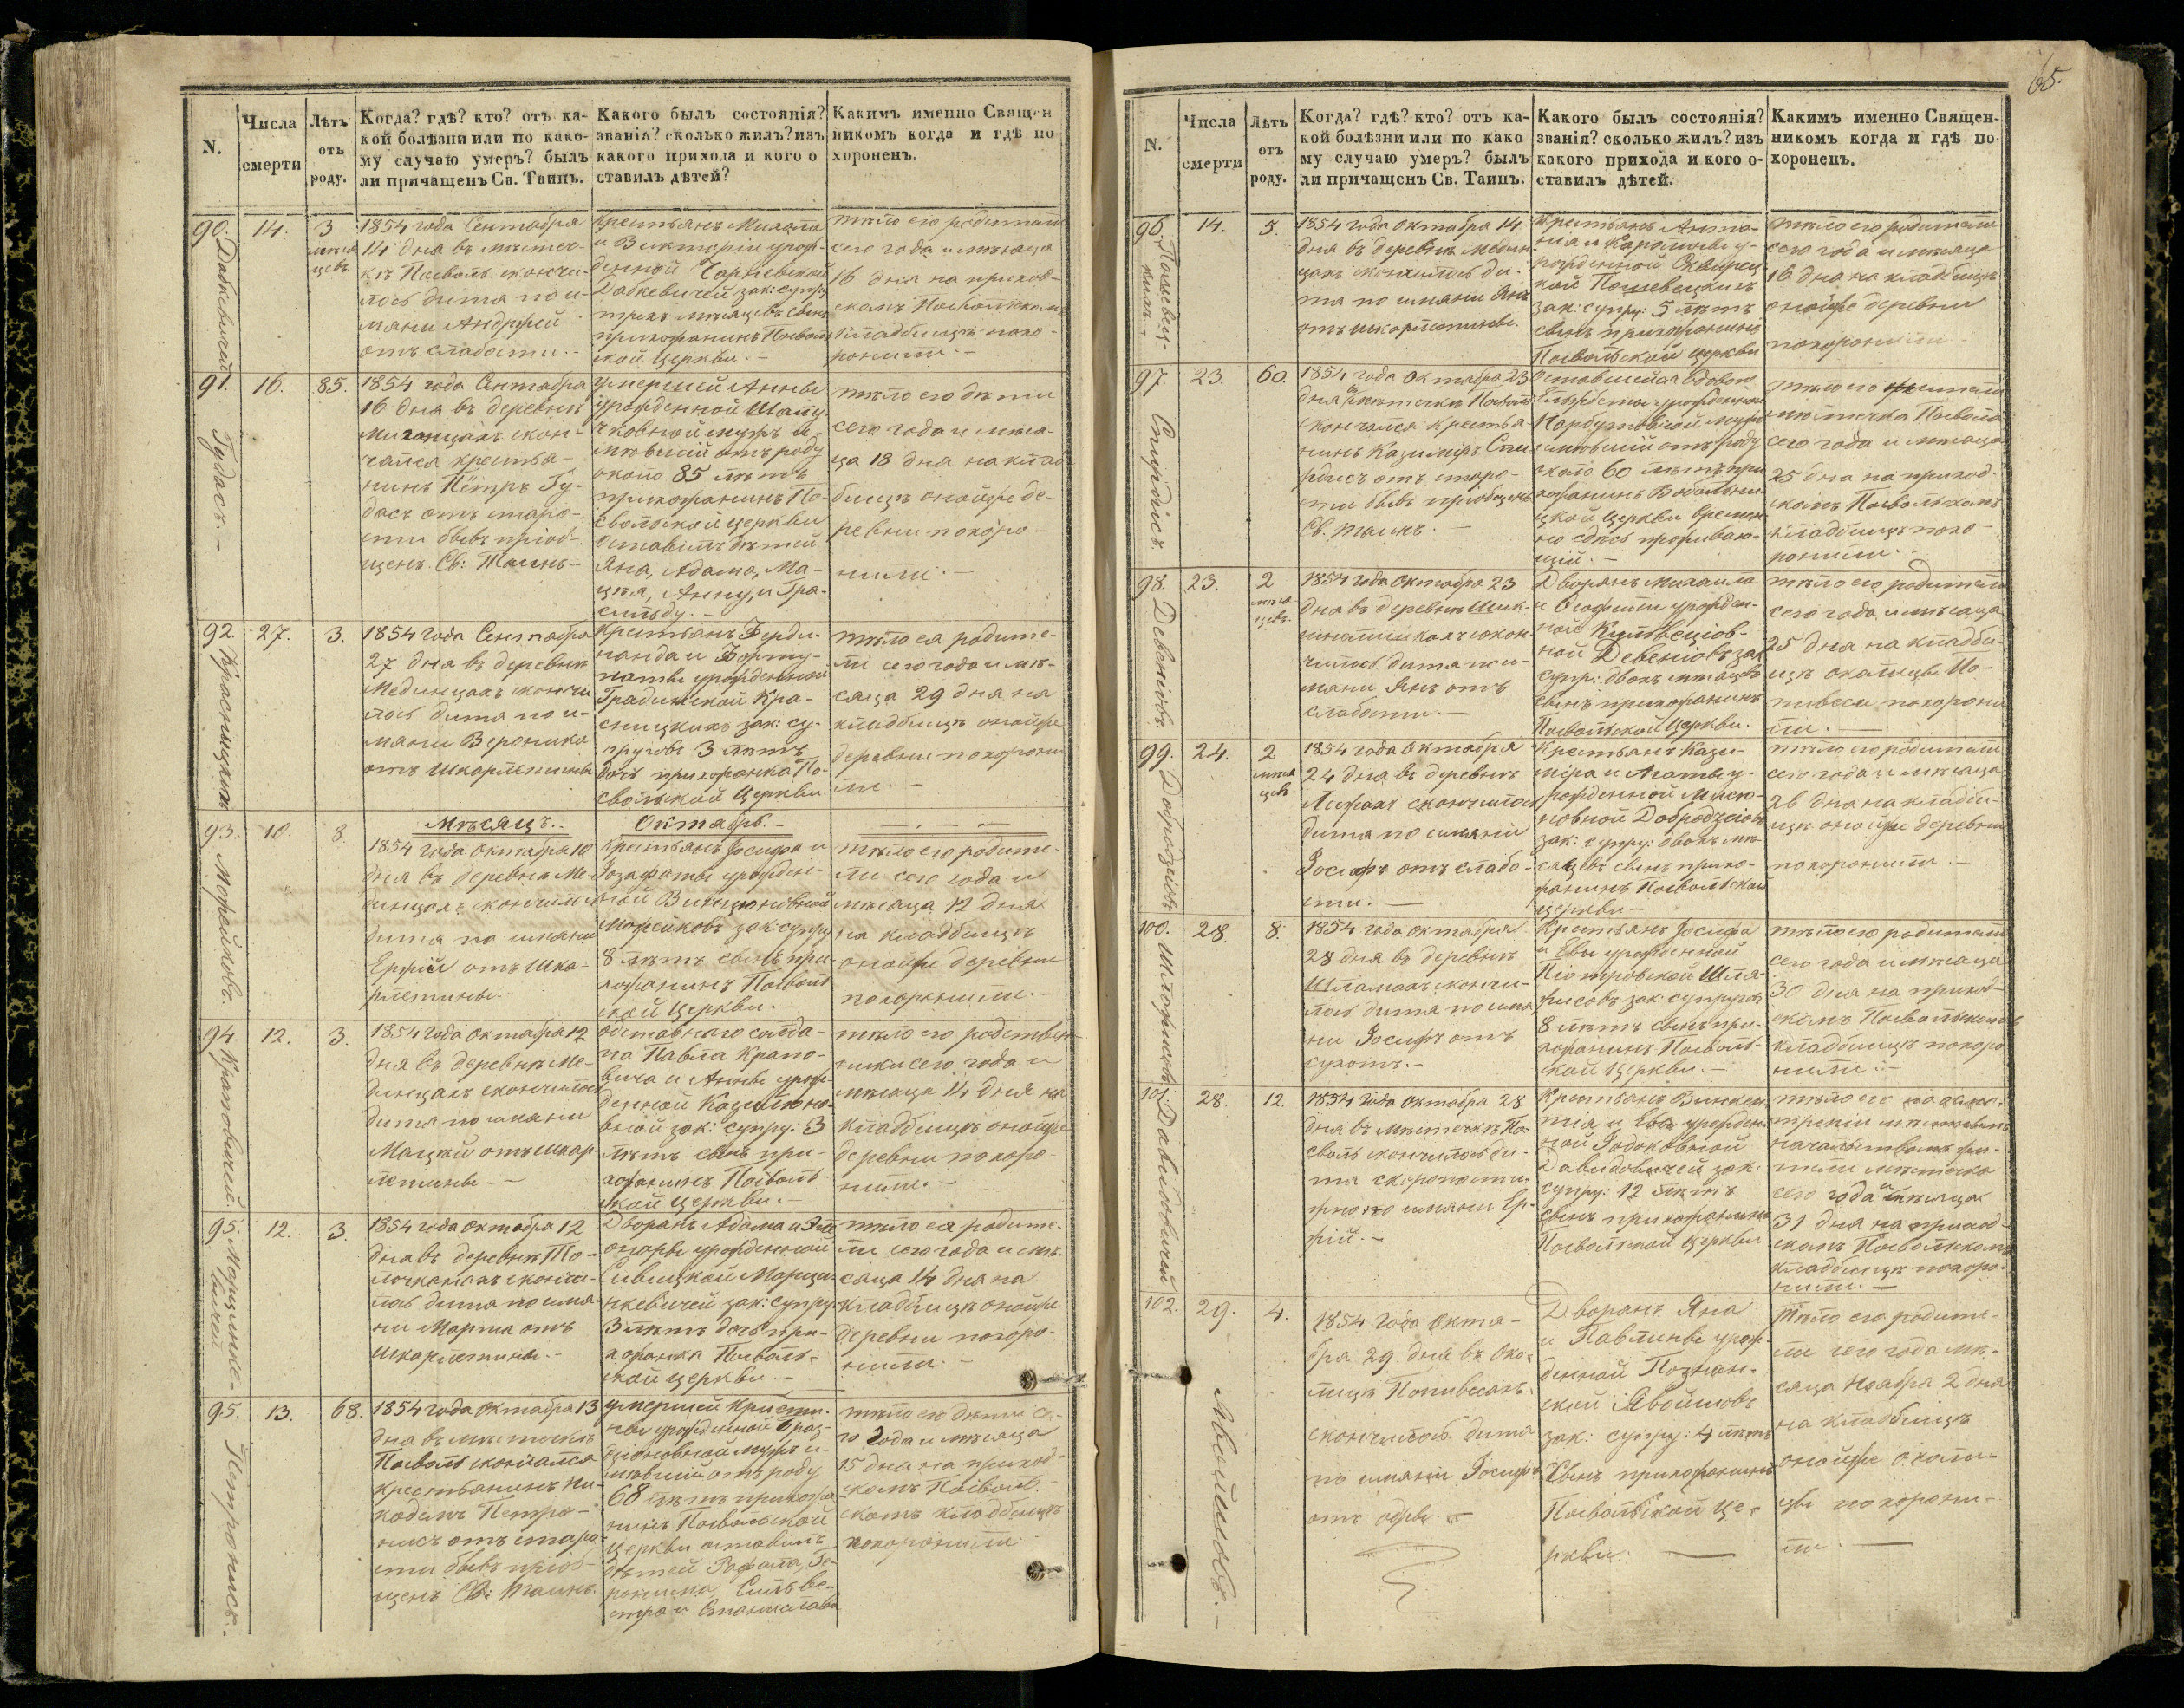 65.
N.
Числа смерти
Лѣтъ отъ роду.
Когда? гдѣ? кто? отъ ка-
кой болѣзни или по како-
му случаю умеръ? былъ
ли причащенъ Св. Таинъ.
Какого былъ состоянія?
званія? сколько жилъ? изъ
какого прихода и кого о
ставилъ дѣтей?
Какимъ именно Священ
никомъ когда и гдѣ по-
хороненъ.
90.
14.
3 мѣся
цевъ.
1854 года Сентября
14 дня въ мѣстеч-
кѣ Посволь скончи-
лось дитя по и-
мяни Андржей
отъ слабости.-
Крестьянъ Михала
и Викторіи урож-
денной
зак: супру
трехъ мѣсяцевъ сынъ
прихожанинъ Посволь
ской Церкви.-
тѣло его родители
сего года и мѣсяца
16 дня на приход-
скомъ Посвольском
кладбищѣ похо-
ронили.-
91.
Гудасъ.-
16.
85.
1854 года Сентября
16 дня въ деревнѣ
скон-
чался крестья-
нинъ Пётръ Гу-
дасъ отъ старо-
сти бывъ пріоб-
щенъ Св: Таинъ-
умершей Анны
урожденной
мужъ и-
мѣвшій отъ роду
около 85 лѣтъ
прихожанинъ По-
свольской церкви
оставилъ дѣтей
Яна, Адама, Ма-
цѣя, Анну, и Гра-
сильду.-
тѣло его дѣти
сего года и мѣся-
ца 18 дня на клад
бищѣ онойже де-
ревни похоро-
нили.-
92.
Красницкихъ
27.
3.
1854 года Сентября
27 дня въ деревнѣ
Мединцахъ скончи
лось дитя по и-
мяни Вероника
отъ шкарлетины
Крестьянъ Ферди-
нанда и Форту-
наты урожденной
Градинской Кра-
сницкихъ зак: су-
пруговъ 3 лѣтъ
дочь прихожанка По-
свольской Церкви.
тѣло ея родите-
ли сего года и мѣ-
сяца 29 дня на
кладбищѣ онойже
деревни похорони
ли.-
Мѣсяцъ..
Октябрь.-
93.
Можейковъ.
10.
8.
1854 года Октября 10
дня въ деревнѣ Ме
динцахъ скончилось
дитя по имяни
Ержій отъ шка-
рлетины.-
Крестьянъ Іосифа и
Іозафаты урожден-
ной
Можейковъ зак: супру
8 лѣтъ сынъ при-
хожанинъ Посволь
ской Церкви.-
тѣло его родите-
ли сего года и
мѣсяца 12 дня
на кладбищѣ
онойже деревни
похоронили.-
94.
Краповичей.
12.
3.
1854 года Октября 12
дня въ деревнѣ Ме-
динцахъ скончилось
дитя по имяни
Мацѣй отъ шкар-
летины--
отставного солда-
та Павла Крапо-
вича и Анны урож-
денной
зак: супру: 3
лѣтъ сынъ при-
хожанинъ Посволь
ской Церкви.-
тѣло его родствен-
ники сего года и
мѣсяца 14 дня на
кладбищѣ онойже
деревни похоро-
нили.-
95.
12.
3.
1854 года Октября 12
дня въ деревнѣ
сконч-
лось дитя по имя-
ни Марта отъ
шкарлетины.-
Дворянъ Адама и Эле
оноры урожденной
Сивицкой Марци-
нкевичей зак: супру
3 лѣтъ дочь при-
хожанка Посволь-
ской церкви.-
тѣло ея родите-
ли сего года и мѣ-
сяца 14 дня на
кладбищѣ онойже
деревни похоро-
нили.-
95.
Петронисъ.-
13.
68.
1854 года Октября 13
дня въ мѣстечкѣ
Посволь скончался
крестьянинъ Ни-
кодемъ Петро-
нисъ отъ старо-
сти бывъ пріоб-
щенъ Св: Таинъ.
умершей Кристи-
ны урожденной
мужъ и-
мѣвшій отъ роду
68 лѣтъ прихожа
нинъ Посвольской
церкви оставилъ
дѣтей Рафала, Іе-
ронима, Сильве-
стра и Станислава
тѣло его дѣти се-
го года и мѣсяца
15 дня на приход-
скомъ Посволь-
скомъ кладбищѣ
похоронили.
N.
Числа смерти
Лѣтъ отъ роду.
Когда? гдѣ? кто? отъ ка-
кой болѣзни или по како
му случаю умеръ? былъ
ли причащенъ Св. Таинъ.
Какого былъ состоянія?
званія? сколько жилъ? изъ
какого прихода и кого о-
ставилъ дѣтей.
Какимъ именно Священ-
никомъ когда и гдѣ по-
хороненъ.
96.
14.
5.
1854 года Октября 14
дня въ деревнѣ Медин
цахъ скончилось ди-
тя по имяни Янъ
отъ шкарлетины.
Крестьянъ Анто-
нія и Каролины у-
рожденной
зак: супру: 5 лѣтъ
сынъ прихожанинъ
Посвольской церкви
тѣло его родители
сего года и мѣсяца
16 дня на кладбищѣ
онойже деревни
похоронили-
97.
Спирдисъ.
23.
60.
1854 года Октября 23
дня въ мѣстечкѣ Посволь
скончался крестья
нинъ Казимиръ Спи
рдисъ отъ старо-
сти бывъ пріобщенъ
Св. Таинъ.-
Оставшейся вдовою
Ельжбеты урожденной
мужъ
имѣвшій отъ роду
около 60 лѣтъ при
хожанинъ
церкви времен
но сдѣсь проживаю-
щій.-
тѣло его жители
мѣстечка Посволя
сего года и мѣсяца
25 дня на приход-
скомъ Посвольскомъ
кладбищѣ похо-
ронили.-
98.
Девеніовъ.
23.
2
мѣся
цевъ.
1854 года Октября 23
дня въ деревнѣ
скон-
чилось дитя по и-
мяни Янъ отъ
слабости-
Дворянъ Михаила
и Теофили урожден-
ной
Девеніовъ зак
супр: двохъ мѣсяцевъ
сынъ прихожанинъ
Посвольской Церкви.
тѣло его родители
сего года и мѣсяца
25 дня на кладби-
щѣ околицы По-
пивеси похорони
ли.-
99.
24.
2
мѣся
цевъ.
1854 года Октября
24 дня въ деревнѣ
скончилось
дитя по имяни
Іосифъ отъ слабо-
сти.-
Крестьянъ Кази-
міра и Агаты у-
рожденной
зак: супру: двохъ мѣ-
сяцевъ сынъ прихо-
жанинъ Посвольской
церкви-
тѣло его родители
сего года и мѣсяца
26 дня на кладби-
щѣ онойже деревни
похоронили.-
100.
28.
8.
1854 года Октября
28 дня въ деревнѣ
скончи-
лось дитя по имя
ни Іосифъ отъ
сухотъ.-
Крестьянъ Іосифа
и Евы урожденной
Піотровской
зак: супруговъ
8 лѣтъ сынъ при-
хожанинъ Посволь-
ской Церкви.-
тѣло его родители
сего года и мѣсяца
30 дня на приход-
скомъ Посвольскомъ
кладбищѣ похоро
нили.-
101.
Давидовичей
28.
12.
1854 года Октября 28
дня въ мѣстечкѣ По-
своль скончилось ди-
тя скоропости-
жно по имяни Ер-
жій.-
Крестьянъ Викен
тія и Евы урожден
ной
Давидовичей зак:
супру: 12 лѣтъ
сынъ прихожанинъ
Посвольской Церкви
тѣло его по осмо-
трѣніи мѣстнымъ
начальствомъ жи-
тели мѣстечка
сего года и мѣсяца
31 дня на приход-
скомъ Посвольскомъ
кладбищѣ похоро-
нили.-
102.
Явойшовъ.-
29.
4.
1854 года Октя-
бря 29 дня въ око-
лицѣ Попивесахъ
скончилось дитя
по имяни Іосифъ
отъ оспы.-
Дворянъ Яна
и Павлины урож-
денной Познан-
ской Явойшовъ
зак: супру: 4 лѣтъ
сынъ прихожанинъ
Посвольской Це-
ркви.-
тѣло его родите-
ли сего года мѣ-
сяца Ноября 2 дня
на кладбищѣ
онойже околи-
цы похорони-
ли.-